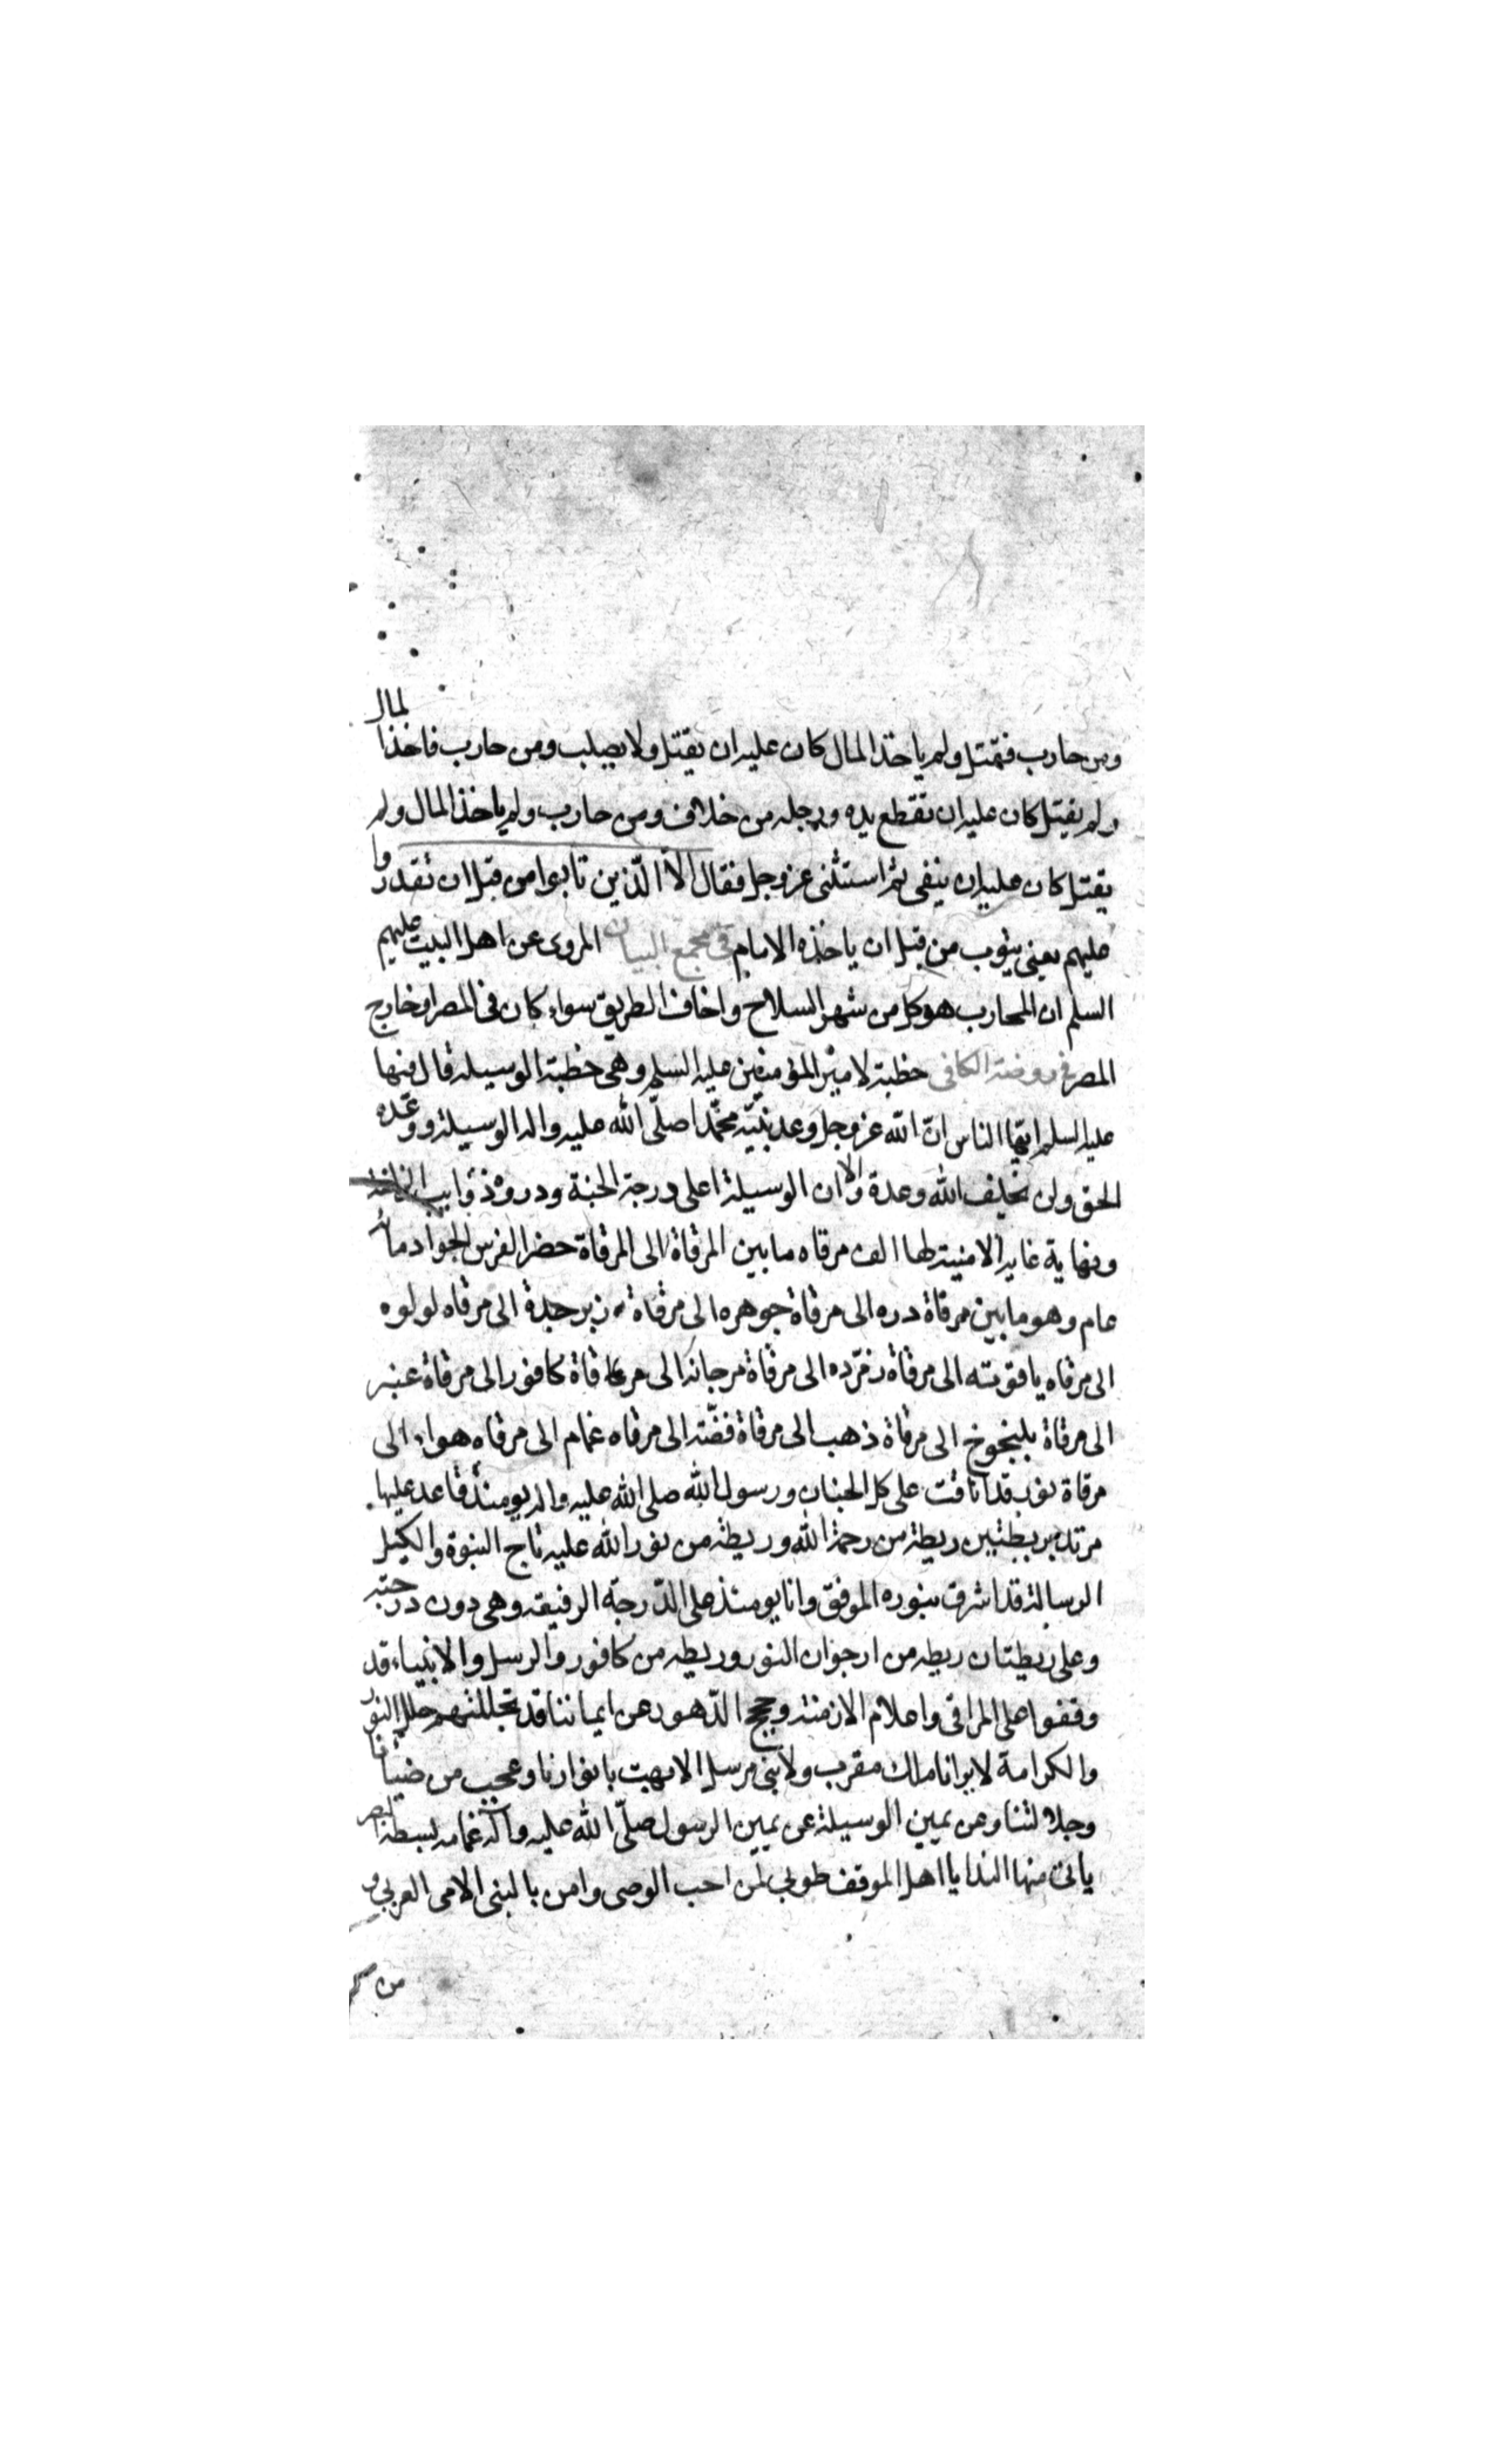 ومن حارب فقتل ولم ياخذ المال كان عليه ان يقتل ولا يصلب ومن حارب فاخذ المال
ولم يقتل كان عليه ان تقطع يده ورجله من خلاف ومن حارب ولم ياخذ المال ولم
يقتل كان عليه ان ينفى ثم استثنى عز وجل فقال الّا الّذين تابوا من قبل ان تقدروا
عليهم يعنى يتوب من قبل ان ياخذه الامام فى مجمع البيان المروى عن اهل البيت عليهم
السلم ان المحارب هو كل من شهر السلاح واخاف الطريق سواء كان فى المصر او خارج
المصر فى روضة الكافى خطبة لامير المؤمنين عليه السلم وهى خطبة الوسيلة قال فيها
عليه السلم ايّها الناس انّ الله عز وجل وعد نبيّه محمّدا صلّى الله عليه واله الوسيلة ووعده
الحق ولن يخلف الله وعدة والا ان الوسيلة اعلى درجة الجنة ودروة ذوايب
ونهاية غاية الامنية لها الف مرقاه ما بين المرقاة الى المرقاة حضر الفرس الجواد مائة
عام وهو ما بين مرقاة دره الى مرقاة جوهره الى مرقاة زبرجدة الى مرقاه لولوه
الى مرقاه ياقوته الى مرقاة زمرّده الى مرقاة مرجانة الى مرقاة كافور الى مرقاة عنبر
الى مرقاة يلنجوج الى مرقاة ذهب الى مرقاة فضّة الى مرقاه غمام الى مرقاه هواء الى
مرقاة نور قد انافت على كل الجنان ورسول الله صلى الله عليه واله يومئذ قاعد عليها
مرتد بريطتين ريطة من رحمة الله وريطة من نور الله عليه تاج النبوة والكليل
الرسالة قد اشرق بنوره الموقف وانا يومئذ على الدّرجة الرفيعة وهى دون درجته
وعلى ريطتان ريطه من ارجوان النور وريطه من كافور والرسل والانبياء قد
وقفوا على المراقى واعلام الازمنة وحجج الدّهور عن ايماننا قد تجللتهم حلل النور
والكرامة لا يرانا ملك مقرب ولا نبى مرسل الا بهت بانوارنا وعجب من ضيائنا
وجلالتنا وعن يمين الوسيلة عن يمين الرسول صلّى الله عليه وآله غمامه بسطة البصر
ياتى منها الندا يا اهل الموقف طوبى لمن احب الوصى وامن بالنبى الامى العربى و
من